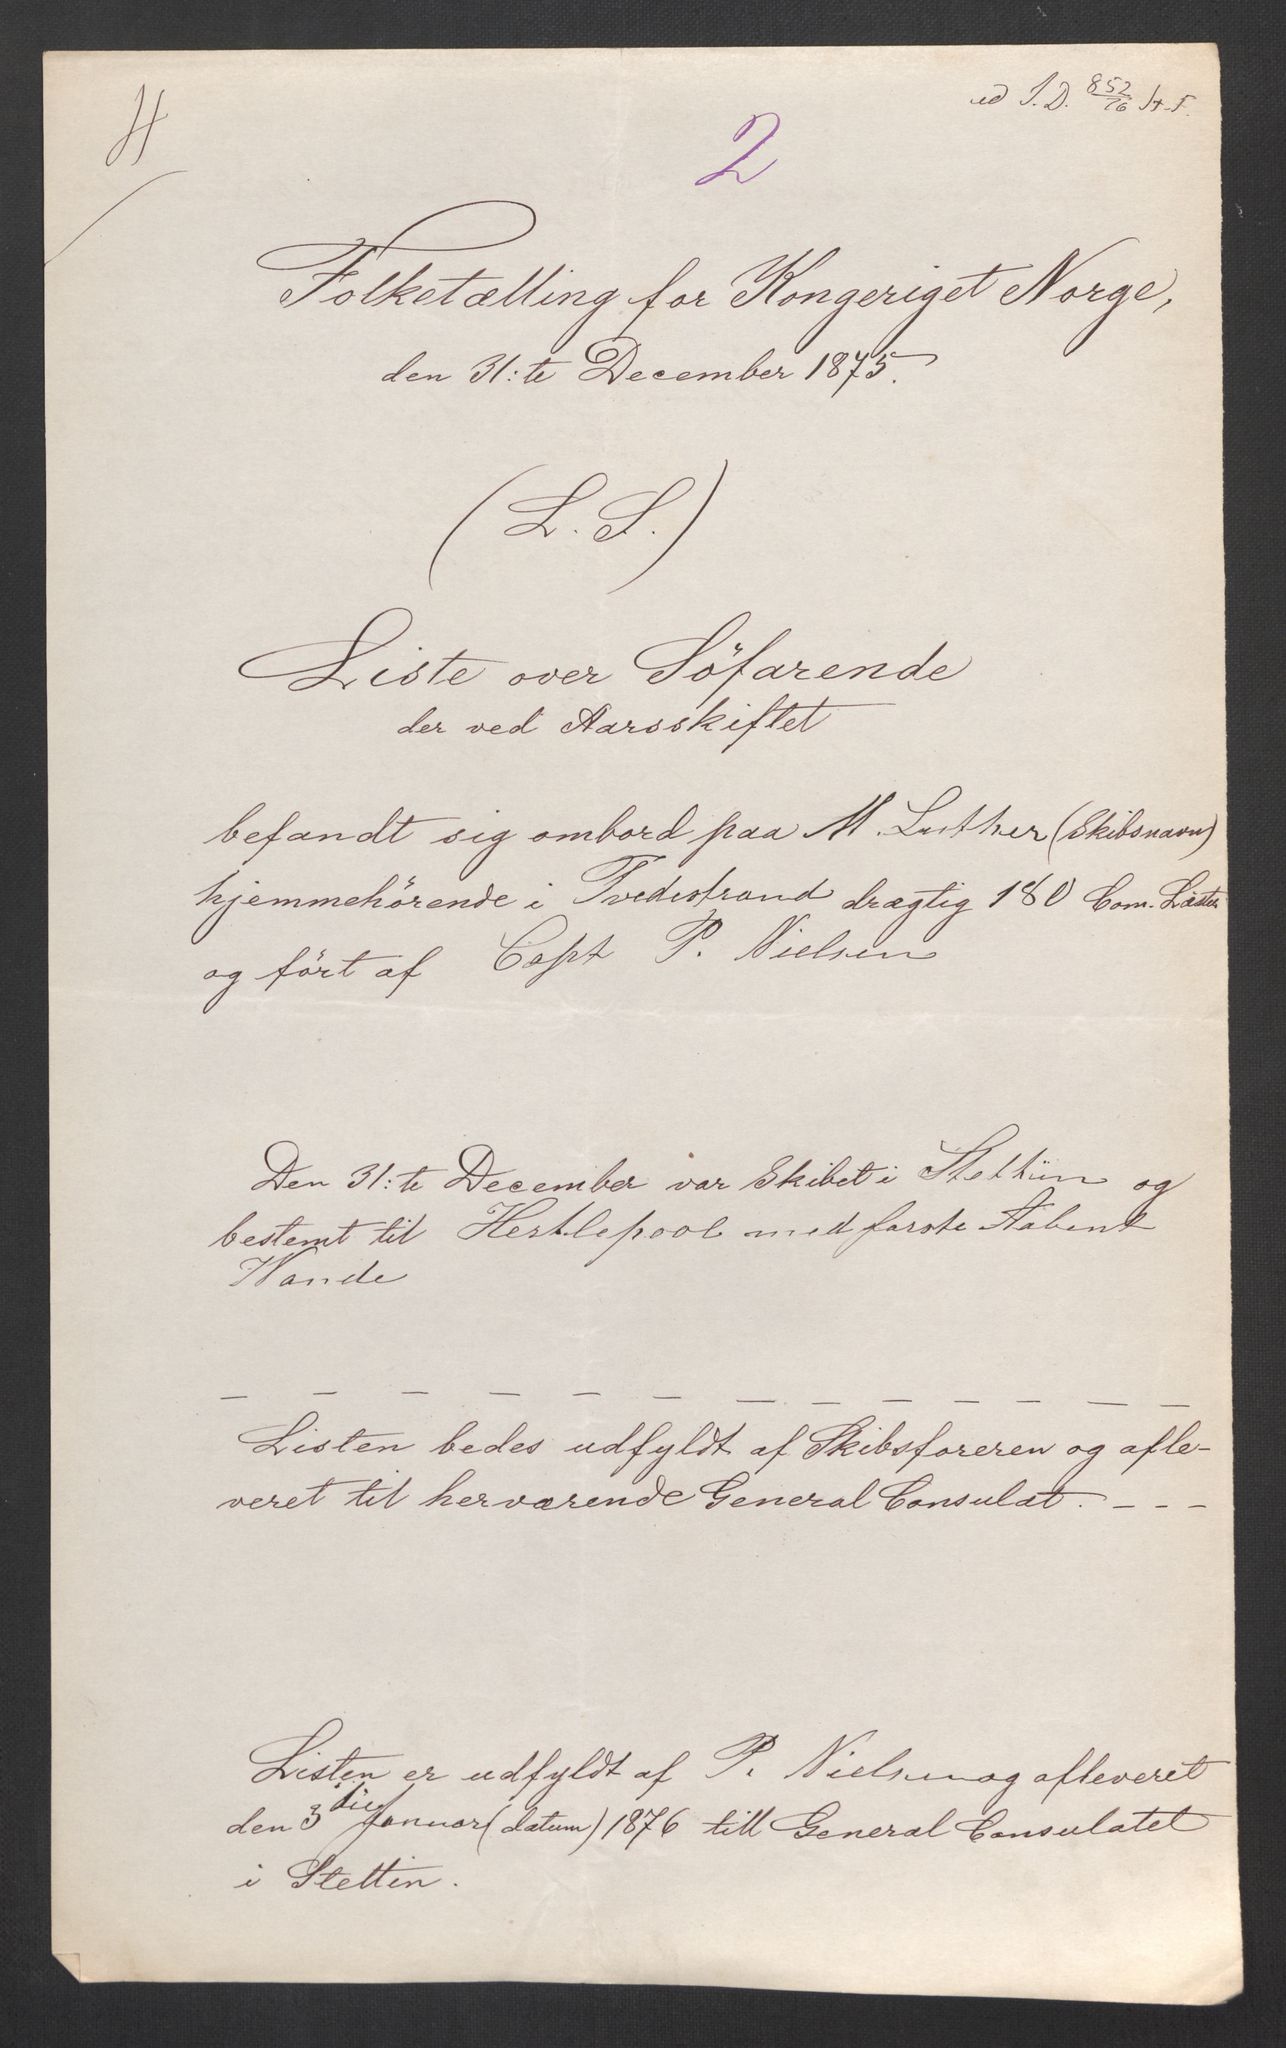 H
ud I.D. 852/76 H.F.
2
Folketælling for Kongeriget Norge,
den 31:te December 1875.
(L. S.)
Liste over Söfarende
der ved Aarsskiftet
befandt sig ombord paa M. Luther (Skibsnavn)
hjemmehörende i Tvedestrand drægtig 180 Com. Læster
og fört af Capt P. Nielsen
Den 31:te December var Skibet i Stettiin og
bestemt til Hertlepool med farste Aabent
Wande
_ _ _ _ _ _ _ _ _ _ _ _
Listen bedes udfyldt af Skibsforeren og afle-
veret til herværende General Consulat. - - -
Listen er udfyldt af P. Nielsen og afleveret
den 3 die Januar (datum) 1876 till General Consulatet
i Stettin.